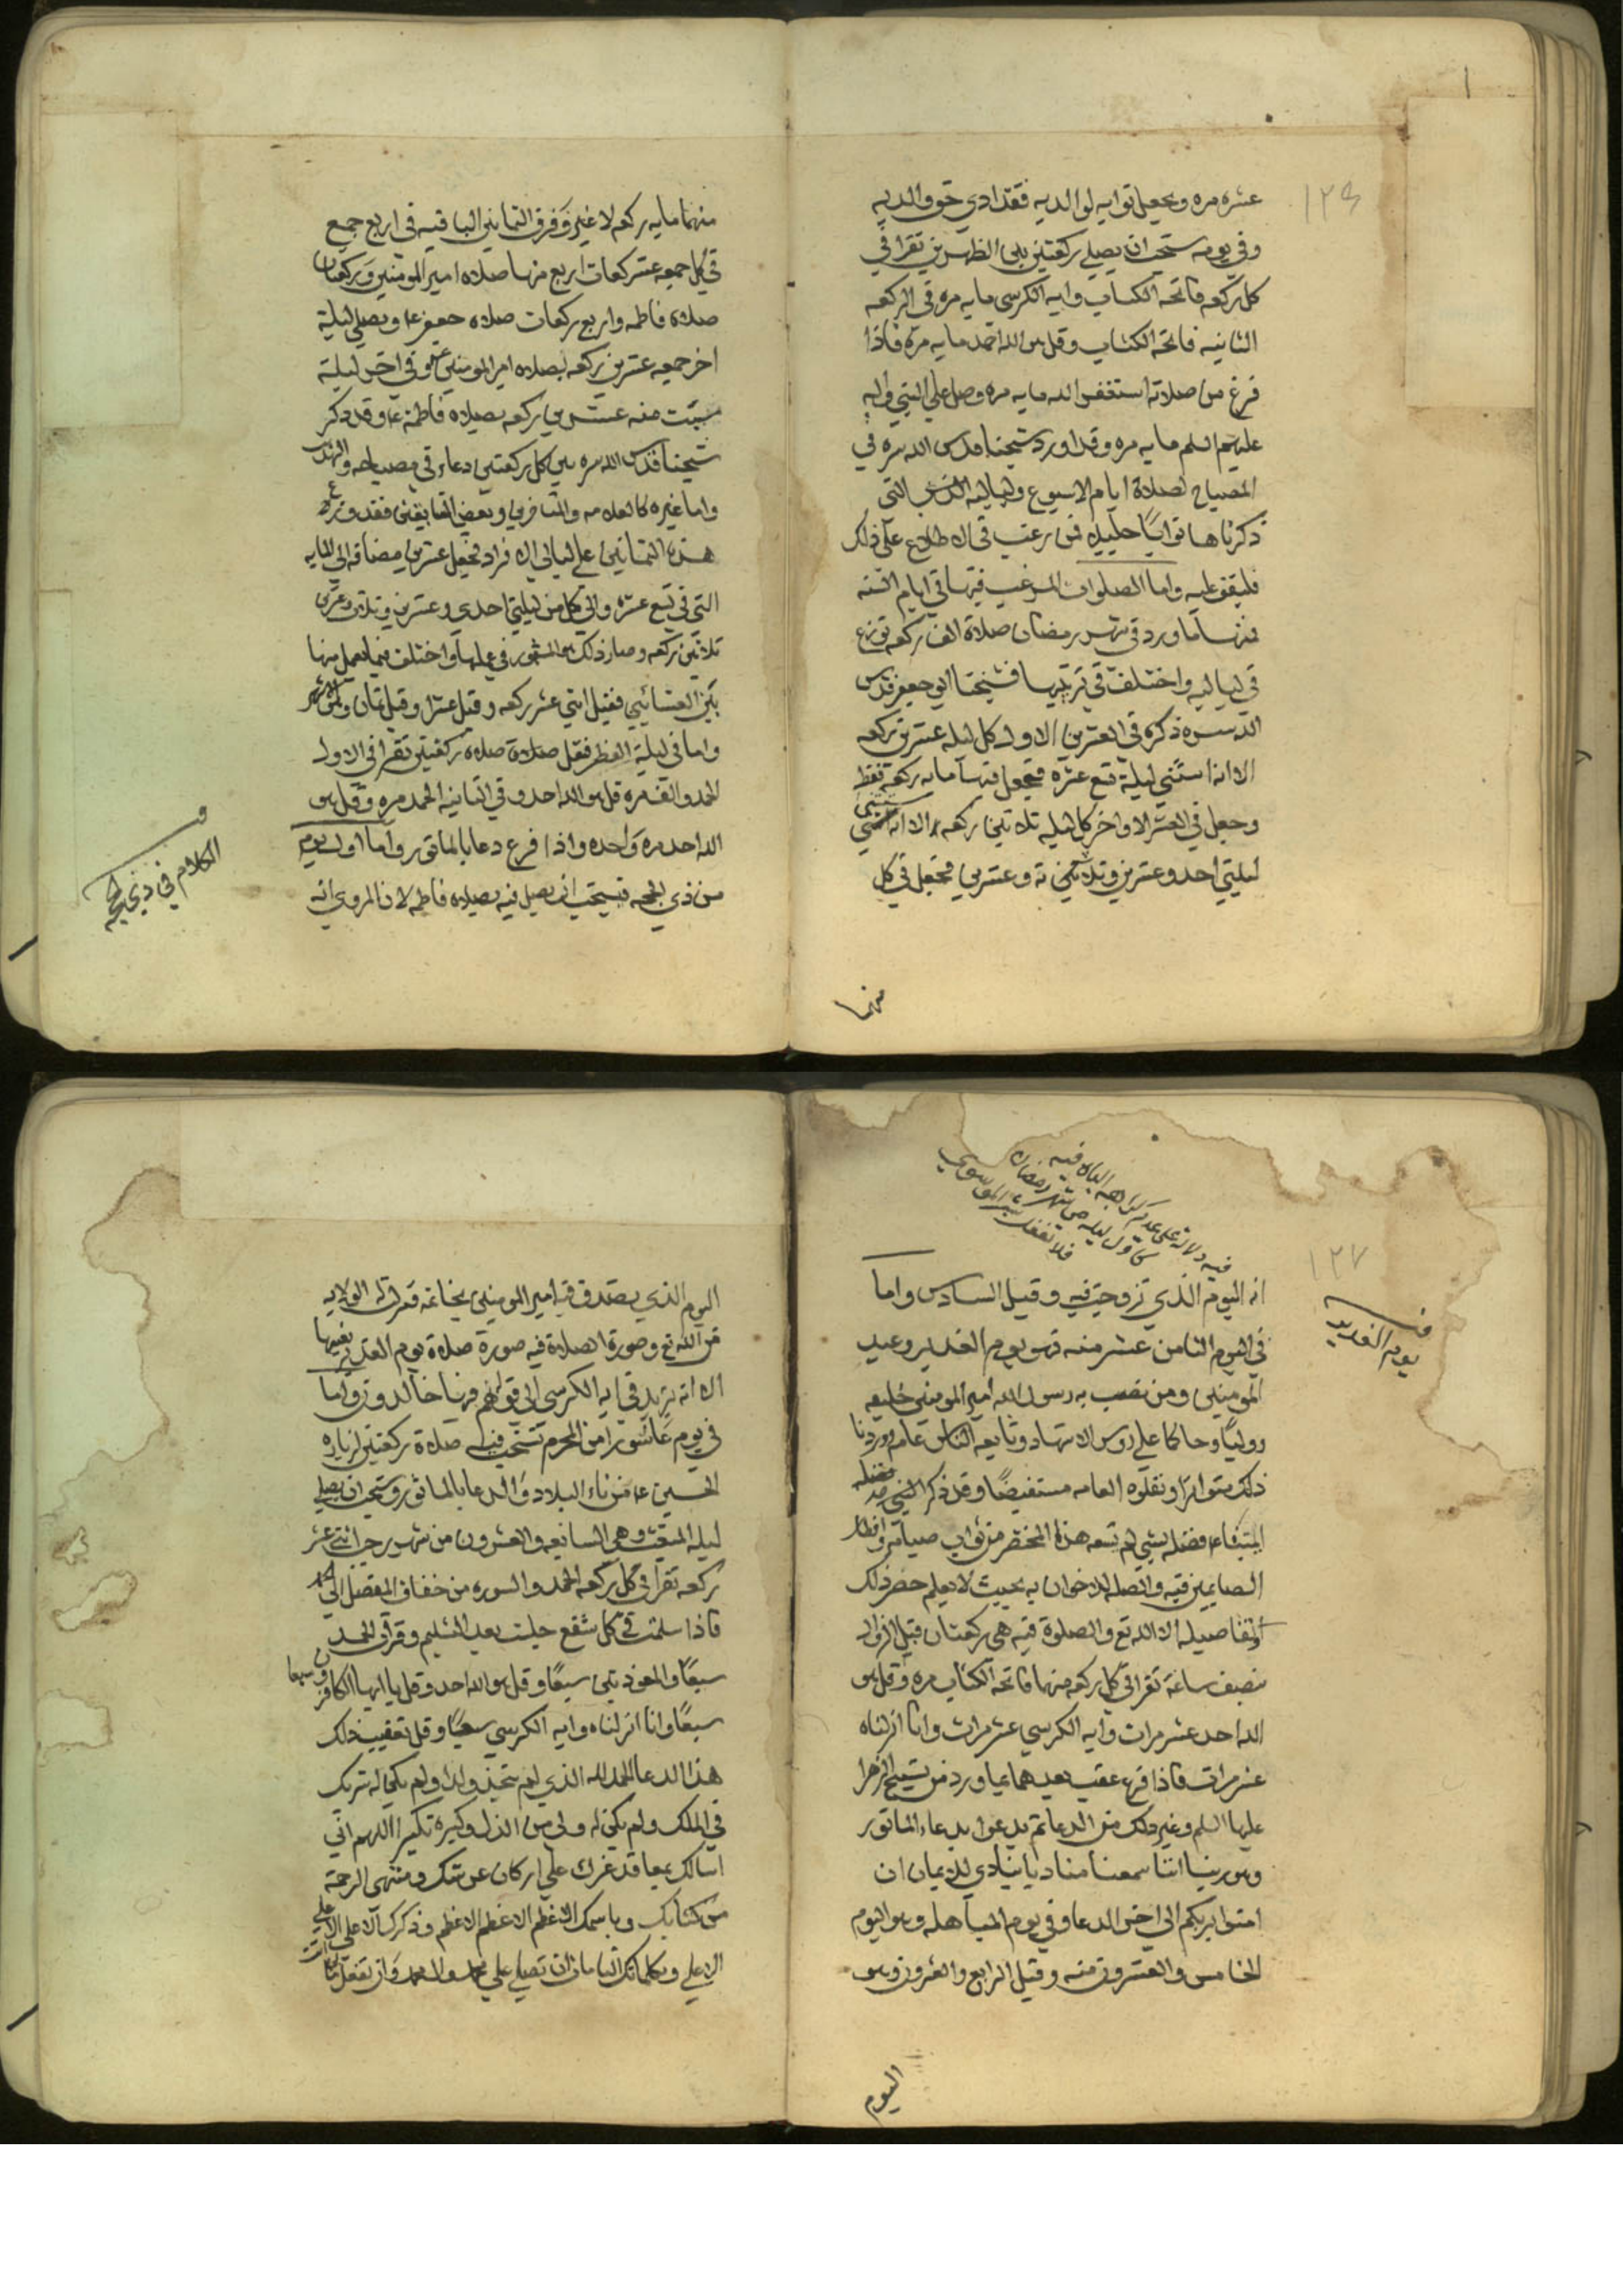 ١٢٦
عشره مره ويجعل ثوابه لوالديه فقد ادي حق والديه
وفي يومه يستحب ان يصلي ركعتين بين الظهرين تقرا في
كل ركعه فاتحه الكتاب وايه الكرسي مايه مره وفي الركعه
الثانيه فاتحه الكتاب وقل هو الله احد مايه مره فاذا
فرغ من صلاته استغفر الله مايه مره وصل علي النبي واله
عليهم السلم مايه مره وقد اورد شيخنا قدس الله سره في
المصباح لصلاة ايام الاسبوع ولياليه التي
ذكرناها ثوابًا جليلا فمن رغب في الاطلاع علي ذلك
فليقف عليه واما الصلوات المرغب فيها في ايام السنه
فمنها ما ورد في شهر رمضان صلاة الف ركعه توزع
في لياليه واختلف في ترتيبها فشيخنا ابو جعفر قدس
الله سره ذكره في العشرين الاول كل ليله عشرين ركعه
الا انه استثني ليلة تسع عشره فجعل فيها مايه ركعه فقط
وجعل في العشر الاواخر كل ليله ثلاثين ركعه الا انه استثني
ليلتي احد وعشرين وثلاثه وعشرين فجعل في كل
منهما
منهما مايه ركعه لا غير وفرق الثمانين الباقيه في اربع جمع
في كل جمعه عشر ركعات اربع منها صلاه امير المومنين وركعتان
صلاه فاطمه واربع ركعات صلاه جعفر ع م ويصلي ليلة
اخر جمعه عشرين ركعه بصلاه امير المومنين وفي اخر ليلة
سبت منه عشرين ركعه بصلاه فاطمه ع م وقد ذكر
شيخنا قدس الله سره بين كل ركعتين دعاء في مصباحه
واما غيره كالعلامه والمتاخرين وبعض السابقين فقد وزع
هذه الثمانين علي ليالي الافراد فجعل عشرين مضافه الي المايه
التي في تسع عشره والي كل من ليلتي احدي وعشرين وثلاث وعشرين
ثلاثين ركعه وصار ذلك هو المشهور في عملها واختلف فيما يعمل منها
بين العشائين فقيل اثني عشر ركعه وقيل عشرا وقيل ثمان
واما في ليلة الفطر فقل صلاة ركعتين تقرا في الاولي
الحمد والف مره قل هو الله احد وفي الثانيه الحمد مره وقل هو
الله احد مره واحده واذا فرغ دعا بالماثور واما اول يوم
من ذي الحجه فيستحب ان يصلي فيه بصلاه فاطمه لان المروي انه
الكلام في ذي الحجه
١٢٧
فيه دلالة علي عدم كراهه الباه فيه
كاول ليله من شهر رمضان
فلا تغفل
انه اليوم الذي تزوجت فيه وقيل السادس واما
في اليوم الثامن عشر منه فهو يوم الغدير وعيد
المومنين ومن نصب به رسول الله امير المومنين خليفه
ووليًا وحاكما علي روس الاشهاد وبايعه الناس عام
ذلك متواترًا ونقلوه العامه مستفيضًا وقد ذكر الشيخ
الصايمين فيه والصله للاخوان به بحيث لا يعلم حصر ذلك
وتفاصيله الا الله تع والصلوة فيه هي ركعتان قبل الزوال
بنصف ساعة تقرا في كل ركعه منها فاتحه الكتاب مره وقل هو
الله احد عشر مرات وايه الكرسي عشر مرات وانا انزلناه
عشر مرات فاذا فرغ عقب بعدهما بما ورد من تسبيح الزهرا
عليها السلم وغير ذلك من الدعا ثم يدعوا بدعاء الماثور
وهو ربنا اننا سمعنا مناديا ينادي للايمان ان
امنوا بربكم الي اخر الدعا وفي يوم المباهله وهو اليوم
الخامس والعشرون منه وقيل الرابع والعشرون وهو
يوم الغدير
اليوم
اليوم الذي يتصدق فيه امير المومنين بخاتمه الولايه
من الله تع وصورة الصلاة فيه صورة صلاة يوم الغدير
الا انه يزيد في ايه الكرسي الي قوله هم فيها خالدون واما
في يوم عاشورا من المحرم تستحب فيه صلاة ركعتين لزياره
الحسين ع م من ناء البلاد والدعا بالماثور ويستحب ان يصلي
ليله المبعث وهي السابعه والعشرون من شهر رجب اثني عشر
ركعه تقرا في كل ركعه الحمد والسوره من خفاف المفصل
فاذا سلمت في كل شفع جلست بعد التسليم وقرات الحمد
سبعًا والمعوذتين سبعًا وقل هو الله احد وقل يا ايها الكافرون سبعا
سبعًا وانا انزلناه وايه الكرسي سبعًا وقل تعقيب ذلك
هذا الدعا الحمد لله الذي لم يتخذ ولدا ولم يكن له شريك
في الملك ولم يكن له ولي من الذل وكبره تكبيرا اللهم اني
اسالك بمعاقد عزك علي اركان عرشك ومنتهي الرحمة
من كتابك وباسمك الاعظم الاعظم الاعظم وذكرك الاعلي الاعلي
الاعلي وبكلماتك التامات ان تصلي علي محمد وال محمد وان تفعل